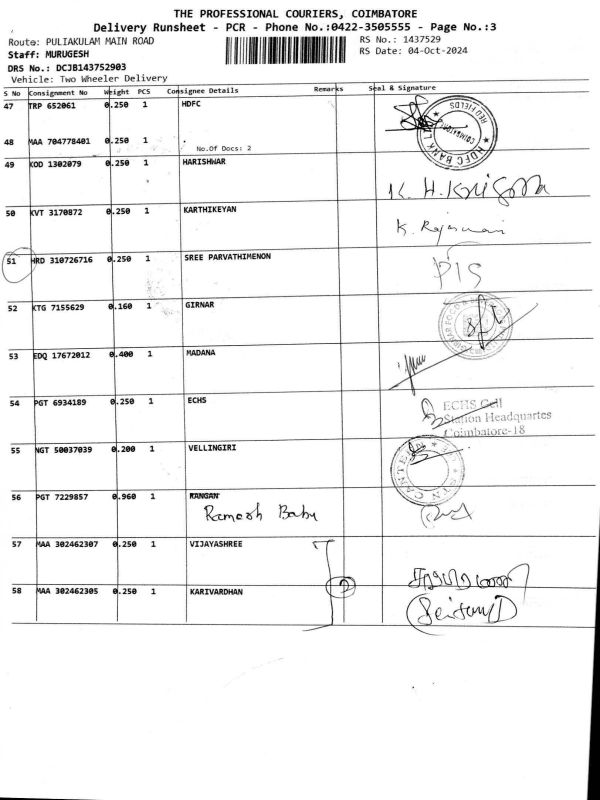 THE PROFESSIONAL COURIERS, COIMBATORE
Delivery Runsheet - PCR - Phone No.:0422-3505555 - Page No.:3
Route: PULIAKULAM MAIN ROAD RS No.: 1437529
Staff: MURUGESH RS Date: 04-Oct-2024
DRS No.: DCJB143752903
Vehicle: Two Wheeler Delivery
S No Consignment No Weight PCS Consignee Details Remarks Seal & Signature
47 TRP 652061 0.250 1 HDFC
HDFC BANK COIMBATORE REDFIELDS
48 MAA 704778401 0.250 1
No.Of Docs: 2
49 KOD 1302079 0.250 1 HARISHWAR
50 KVT 3170872 0.250 1 KARTHIKEYAN
K. Rajeswari
51 HRD 310726716 0.250 1 SREE PARVATHIMENON
PIS
52 KTG 7155629 0.160 1 GIRNAR
53 EDQ 17672012 0.400 1 MADANA
54 PGT 6934189 0.250 1 ECHS
ECHS Cell
Station Headquartes
Coimbatore-18
55 NGT 50037039 0.200 1 VELLINGIRI
56 PGT 7229857 0.960 1 RANGAN
Ramesh Babu
57 MAA 302462307 0.250 1 VIJAYASHREE
58 MAA 302462305 0.250 1 KARIVARDHAN